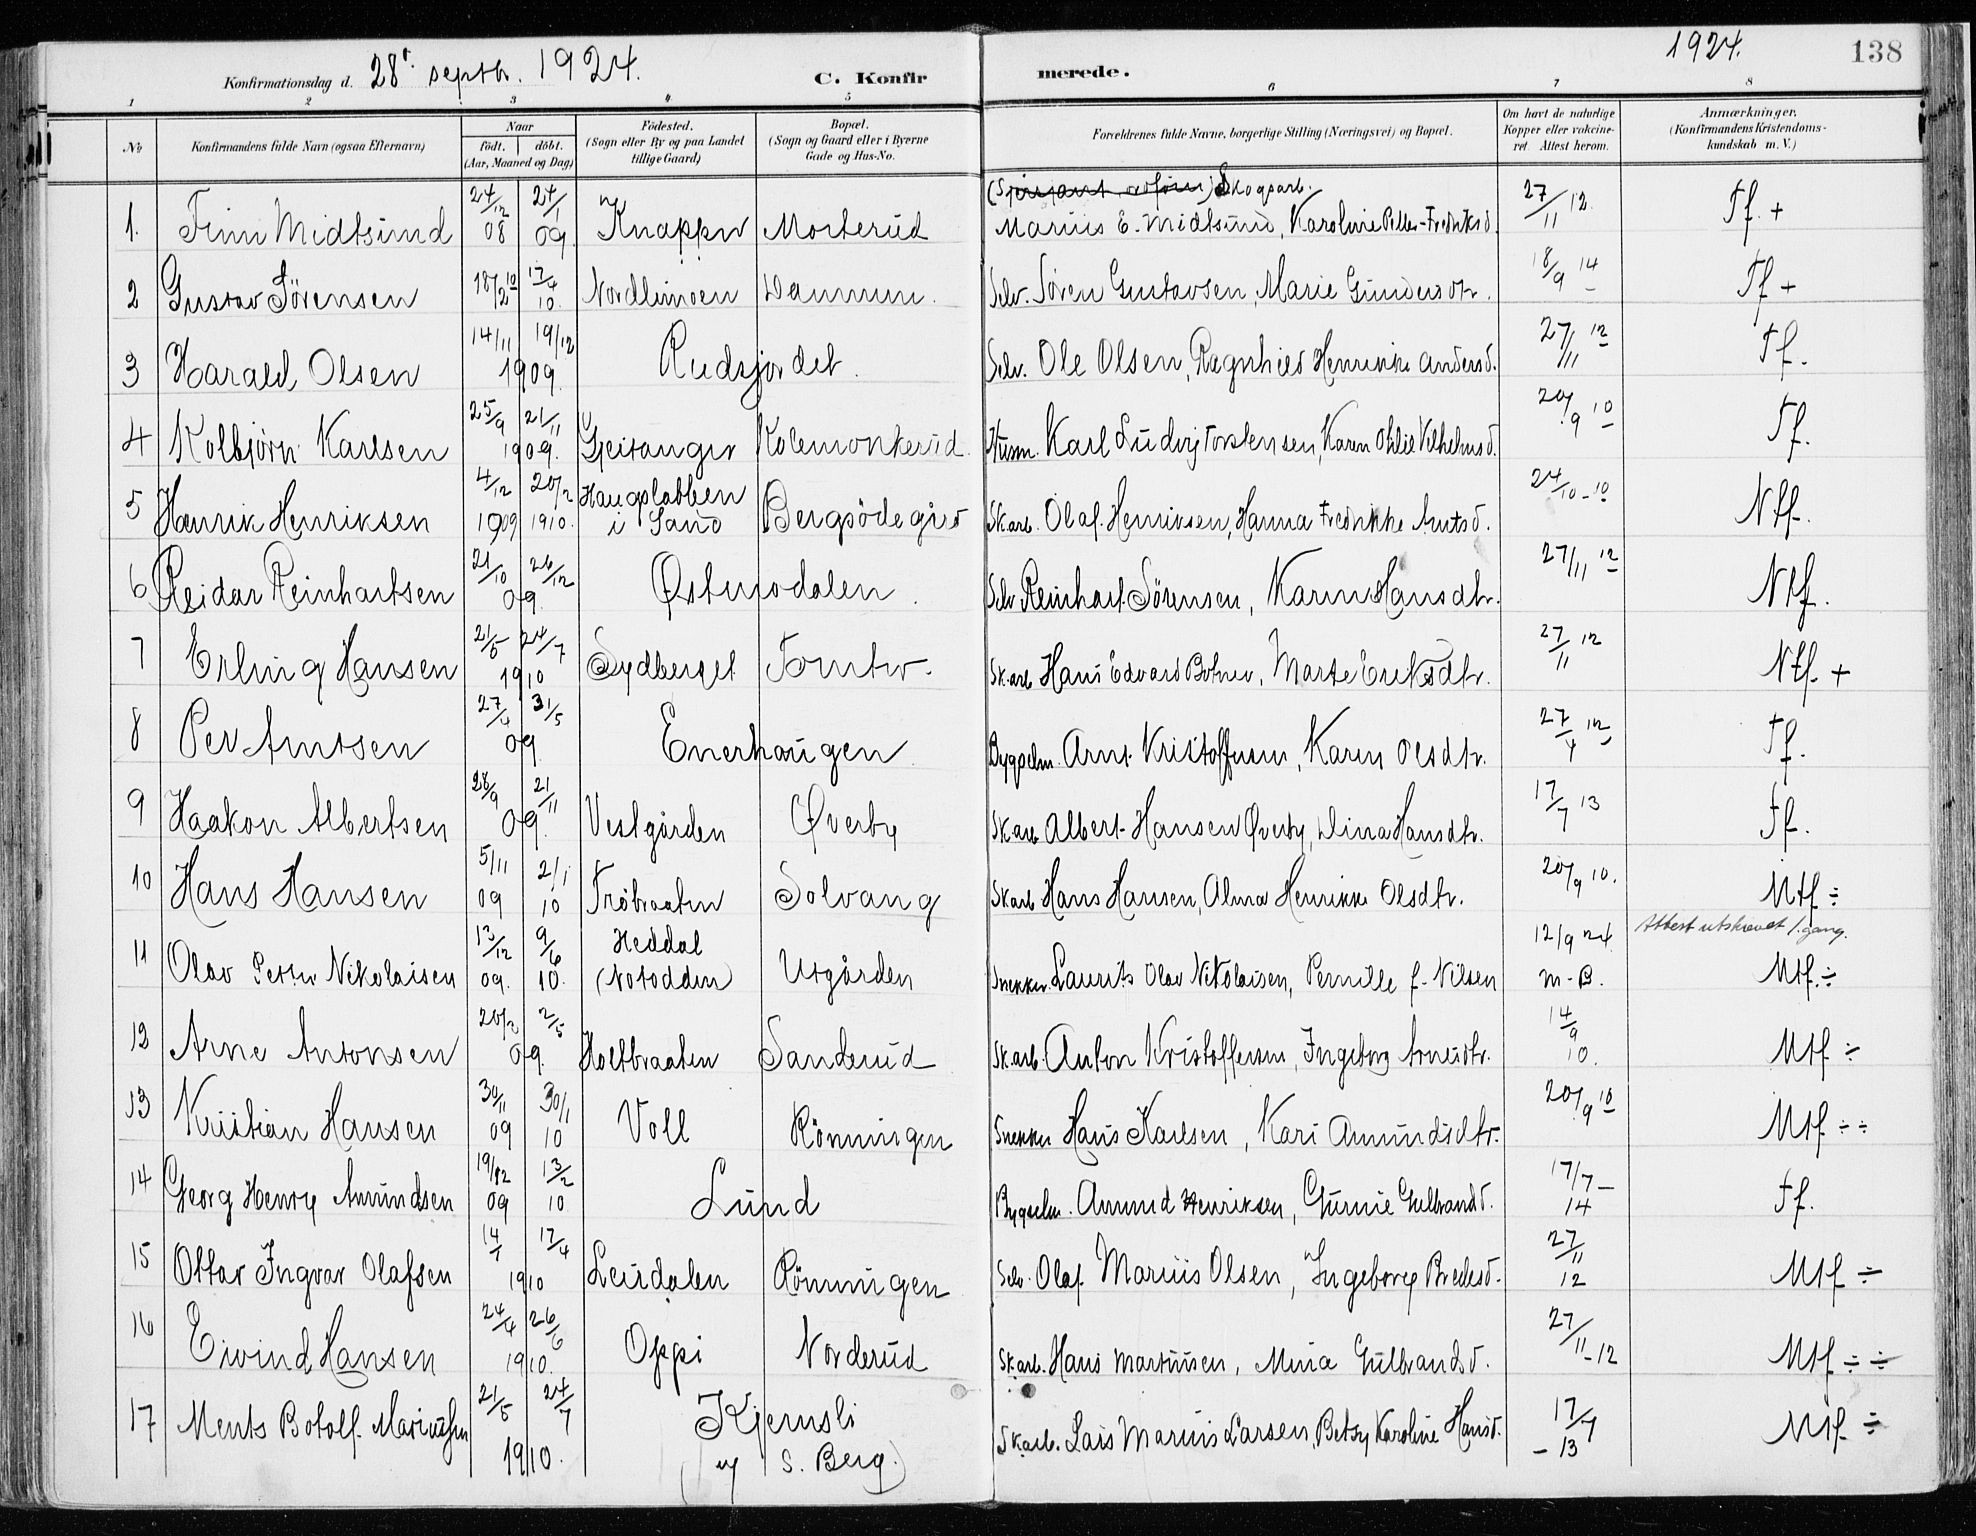 Konfirmationsdag d. 28' septbr. 1924. C. Konfirmerede. 1924. 138
1 2 3 4 5 6 7 8
No Konfirmandens fulde Navn (ogsaa Efternavn) Naar født. døbt. (Aar, Maaned og Dag) Fødested. (Sogn eller By og paa Landet tillige Gaard) Bopæl. (Sogn og Gaard eller i Byerne Gade og Hus-No. Forældrenes fulde Navne, borgerlige Stilling (Næringsvei) og Bopæl. Om havt de naturlige Kopper eller vakcineret. Attest herom. Anmærkninger. (Konfirmandens Kristendomskundskab m. V.)
Skogsarb.
1. Finn Midtsund 24/12 08 24/1 09. Knapper Morterud Marius E. Midtsund, Karoline Fredriksd. 27/11 12. Tf. +
2 Gustav Sörensen 18/2 10 17/4 10. Nordlimoen Selv. Søren Gustavsen, Marie Gundersdtr. 18/9 14 Tf +
3 Harald Olsen 14/11 19/12 1909. Rudsjordet. Selv. Ole Olsen, Ragnhild Henrikke Andersd. 27/11 12 Tf.
4 Kolbjörn Karlsen 25/9 21/11 1909. Geitanger Kolemonkerud Husm. Karl Ludvig Torstensen, Karen Otilie Vilhelmsd. 20/9 10 Tf.
5 Henrik Henriksen 4/12 1909 20/2 1910. Haugslabben i Sand Bergsødegird Sk.arb. Olaf Henriksen, Hanna Fredrikke Antsd. 24/10 - 10 Ntf.
6 Reidar Reinhartsen 21/10 26/12 09. Østmodalen. Selv Reinhart Sörensen, Karen Hansdtr. 27/11 12 Ntf.
7 Erling Hansen 21/5 24/7 1910 Sydberget Tomter. Sk.arb. Hans Edvard Botner, Marte Eriksdtr. 27/11 12 Ntf. +
8 Per Arntsen 27/4 31/5 09. Enerhaugen. Bygselm. Arnt Kristoffersen, Karen Olsdtr. 27/4 12 Tf.
9 Haakon Albertsen 28/9 21/11 09. Vestgården Øverby Sk.arb Albert Hansen Øverby, Dina Hansdtr. 17/7 13 Tf.
10 Hans Hansen 5/11 09 2/1 10 Trøbraaten Solvang Sk.arb Hans Hansen, Alma Henrikke Olsdtr. 20/9 10. Mtf ÷
11 Olav Petter Nikolaisen 13/12 09. 9/6 10. Heddal (Notodden) Utgården Snekker. Laurits Olav Nikolaisen, Pernille f. Nilsen 12/9 24 m-B. Attest utskrevet 1. gang. Mtf. ÷
12 Arne Antonsen 20/3 2/5 09. Holtbraaten Sanderud Sk.arb. Anton Kristoffersen, Ingeborg Arnesdtr. 14/9 10. Mtf ÷
13 Kristian Hansen 30/11 09 30/1 10 Voll Rönningen Snekker Hans Karlsen, Kari Amundsdtr. 20/9 10 Mtf ÷ ÷
14 Georg Henry Amundsen 19/12 09 13/2 10 Lund Bygselm. Amund Henriksen, Gurine Gulbrandsd. 17/7 - 14 Tf.
15 Ottar Ingvar Olafsen 14/1 17/4 1910 Leirdalen Rönningen Selv. Olaf Marius Olsen, Ingeborg Bredesd. 27/11 12 Mtf ÷
16 Eivind Hansen 24/4 26/6 1910. Oppi Norderud Sk.arb. Hans Martinsen, Mina Gulbrandsd. 27/11 - 12 Mtf ÷ ÷
17 Ments Botolf Mariussen 21/5 24/7 1910. Kjernsli (ny S. Berg.) Sk.arb. Lars Marius Larsen, Betsy Karoline Hansd. 17/7 - 13 Mtf. ÷